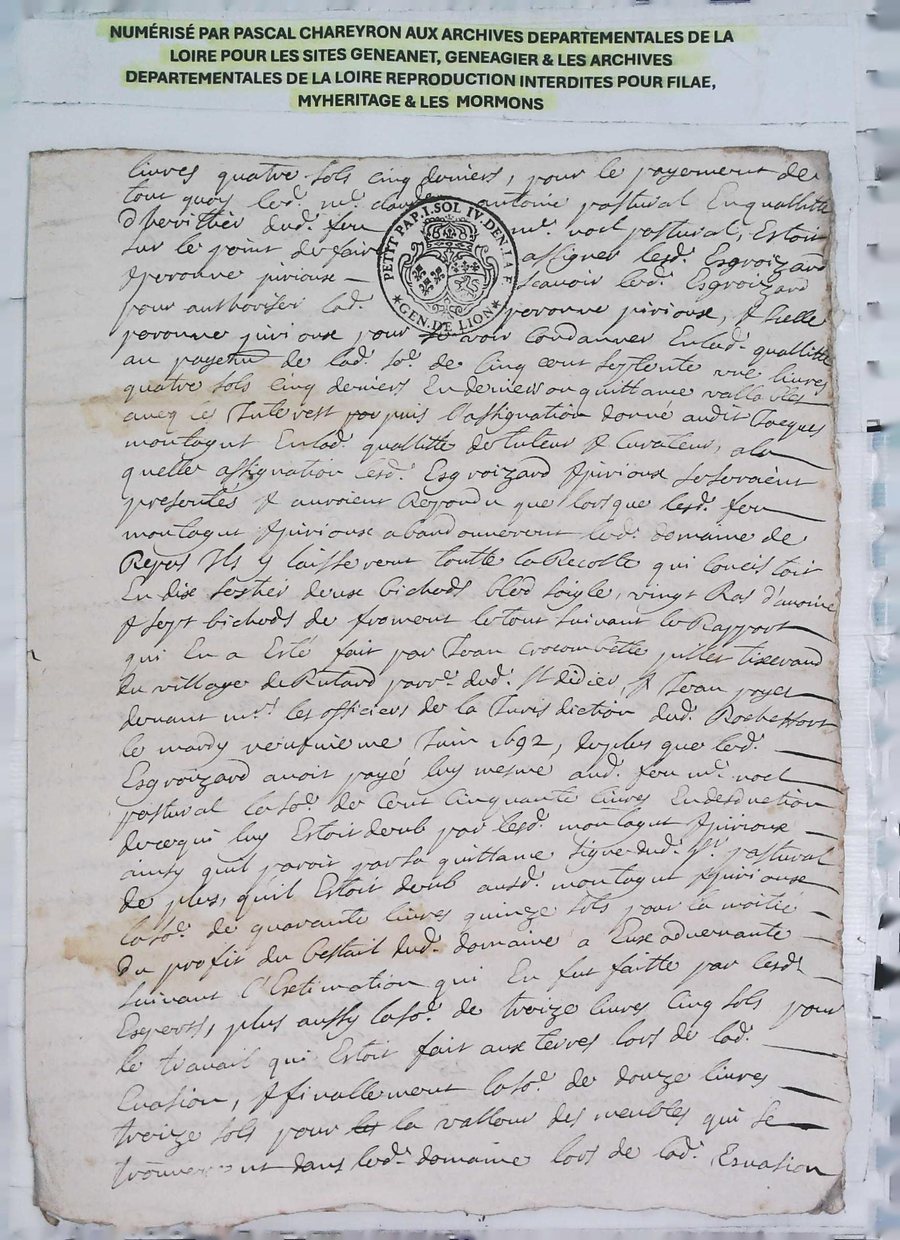 NUMÉRISÉ PAR PASCAL CHAREYRON AUX ARCHIVES DEPARTEMENTALES DE LA
LOIRE POUR LES SITES GENEANET, GENEAGIER & LES ARCHIVES
DEPARTEMENTALES DE LA LOIRE REPRODUCTION INTERDITES POUR FILAE,
MYHERITAGE & LES MORMONS
livres quatre sols cinq deniers, pour le payement de
tout quoy led. mr. claude antoine pastural En quallitté
d'heritier dud. feu mr. noel pastural, Estoit
sur le point de faire assigner lesd. Esgroizard
& peronne pirioux scavoir led. Esgroizard
pour authoriser lad. peronne pirioux, & Icelle
peronne pirioux pour se voir condamner En lad. quallitté
au payemt de lad. so. de cinq cent septente une livres
quatre sols cinq deniers En deniers ou quittance vallables
avecq les Interest depuis l'assignation donné audit Jacques
montagut En lad. quallitté de tuteur & curateur, a la
quelle assignation lesd. Esgroizard & pirioux se seroient
presentés & auroient Repondu que lorsque lesd. feu
montagut & pirioux abandonnerent led. domaine de
Ils y laisserent toutte la Recolte qui concistoit
En dix sestier deux bichods bled soigle, vingt Ras d'avoine
& sept bichods de froment le tout suivant le Rapport
qui En a Esté fait par Jean tixerand
du village de parr. dud. St didier, & Jean payet
devant mrs. les officiers de la Jurisdiction dud. Rocheffort
le mardy neufvieme Juin 1692, de plus que led.
Esgroizard avoit payé luy mesme aud. feu mr. noel
pastural la so. de cent cinquante livres En desduction
de ce qui luy Estoit deub par lesd. montagut & pirioux
ainsy quil paroit par sa quittance signe dud. Sr. pastural
de plus, quil Estoit deub ausd. montagut & pirioux
la so. de quarante livres quinze sols pour la moitié
du profit du bestail dud. domaine a Eux advenante
suivant l'Extimation qui En fut faitte par lesd.
Experts, plus aussy la so. de treize livres cinq sols pour
le travail qui Estoit fait aux terres lors de lad.
Evasion, & finallement la so. de douze livres
treize sols pour la valleur des meubles qui se
trouverent dans led. domaine lors de lad. Esvasion
PETIT PAP. I. SOL IV. DEN. LA F.
GEN. DE LION